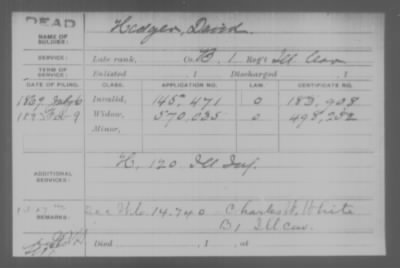 DEAD
NAME OF SOLDIER: Hedger, David.
SERVICE: Late rank, Co. B, 1 Reg't Ill Cav
TERM OF SERVICE: Enlisted , 1 Discharged , 1
DATE OF FILING. CLASS. APPLICATION NO. LAW. CERTIFICATE NO.
1869 July 6 Invalid, 145,471 0 183,908
Widow, 570,035 0 498,252
Minor,
ADDITIONAL SERVICES: H, 120 Ill Inf.
REMARKS: 14.740 Charles W. White
B 1 Ill cav.
Died , 1 , at